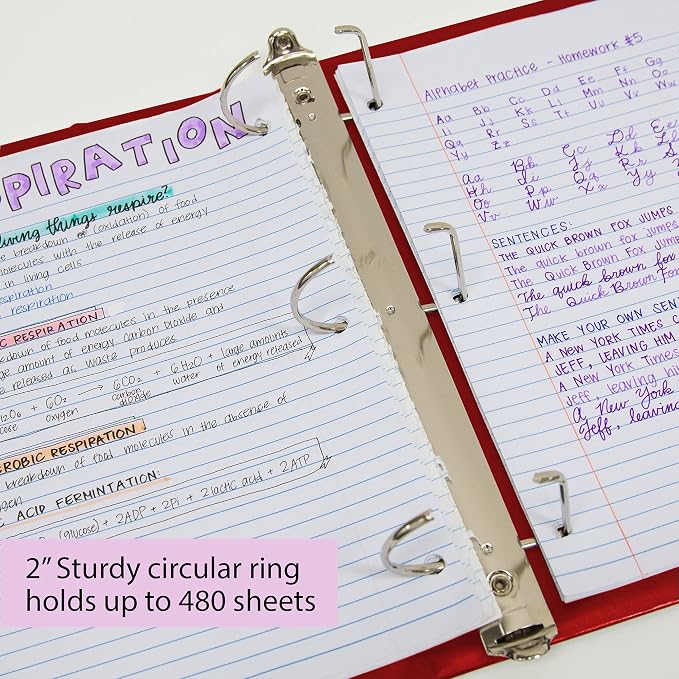 SPIRATION
living things respire?
e breakdown of (oxidation) of food
molecules with the release of energy
in living cells
respiration
respiration
C RESPIRATION
down of food molecules in the presence
ge amount of energy. Carbon Dioxide and
re released as waste products.
6O₂ → 6CO₂ + 6H₂O + large amounts
ose oxygen carbon dioxide water of energy released
EROBIC RESPIRATION
breakdown of food molecules in the absence of
gen
C ACID FERMINTATION:
(glucose) + 2ADP + 2Pi → 2lactic acid + 2ATP
2” Sturdy circular ring
holds up to 480 sheets
Alphabet Practice - Homework #5
Aa Bb Cc Dd Ee Ff Gg
Ii Jj Kk Ll Mm Nn Oo
Qq Rr Ss Tt Uu Vv
Yy Zz
Aa Bb Cc Dd Ee
Hh Ii Jj Kk Ll
Oo Pp Qq Rr Ss
Vv Ww Xx Yy
SENTENCES:
THE QUICK BROWN FOX JUMPS
The quick brown fox jumps
The Quick Brown Fox Jumps
The quick brown fox
The Quick Brown Fox
MAKE YOUR OWN SEN
A NEW YORK TIMES C
JEFF, LEAVING HIM
A New York Times
Jeff, leaving hi
A New York
Jeff, leavin